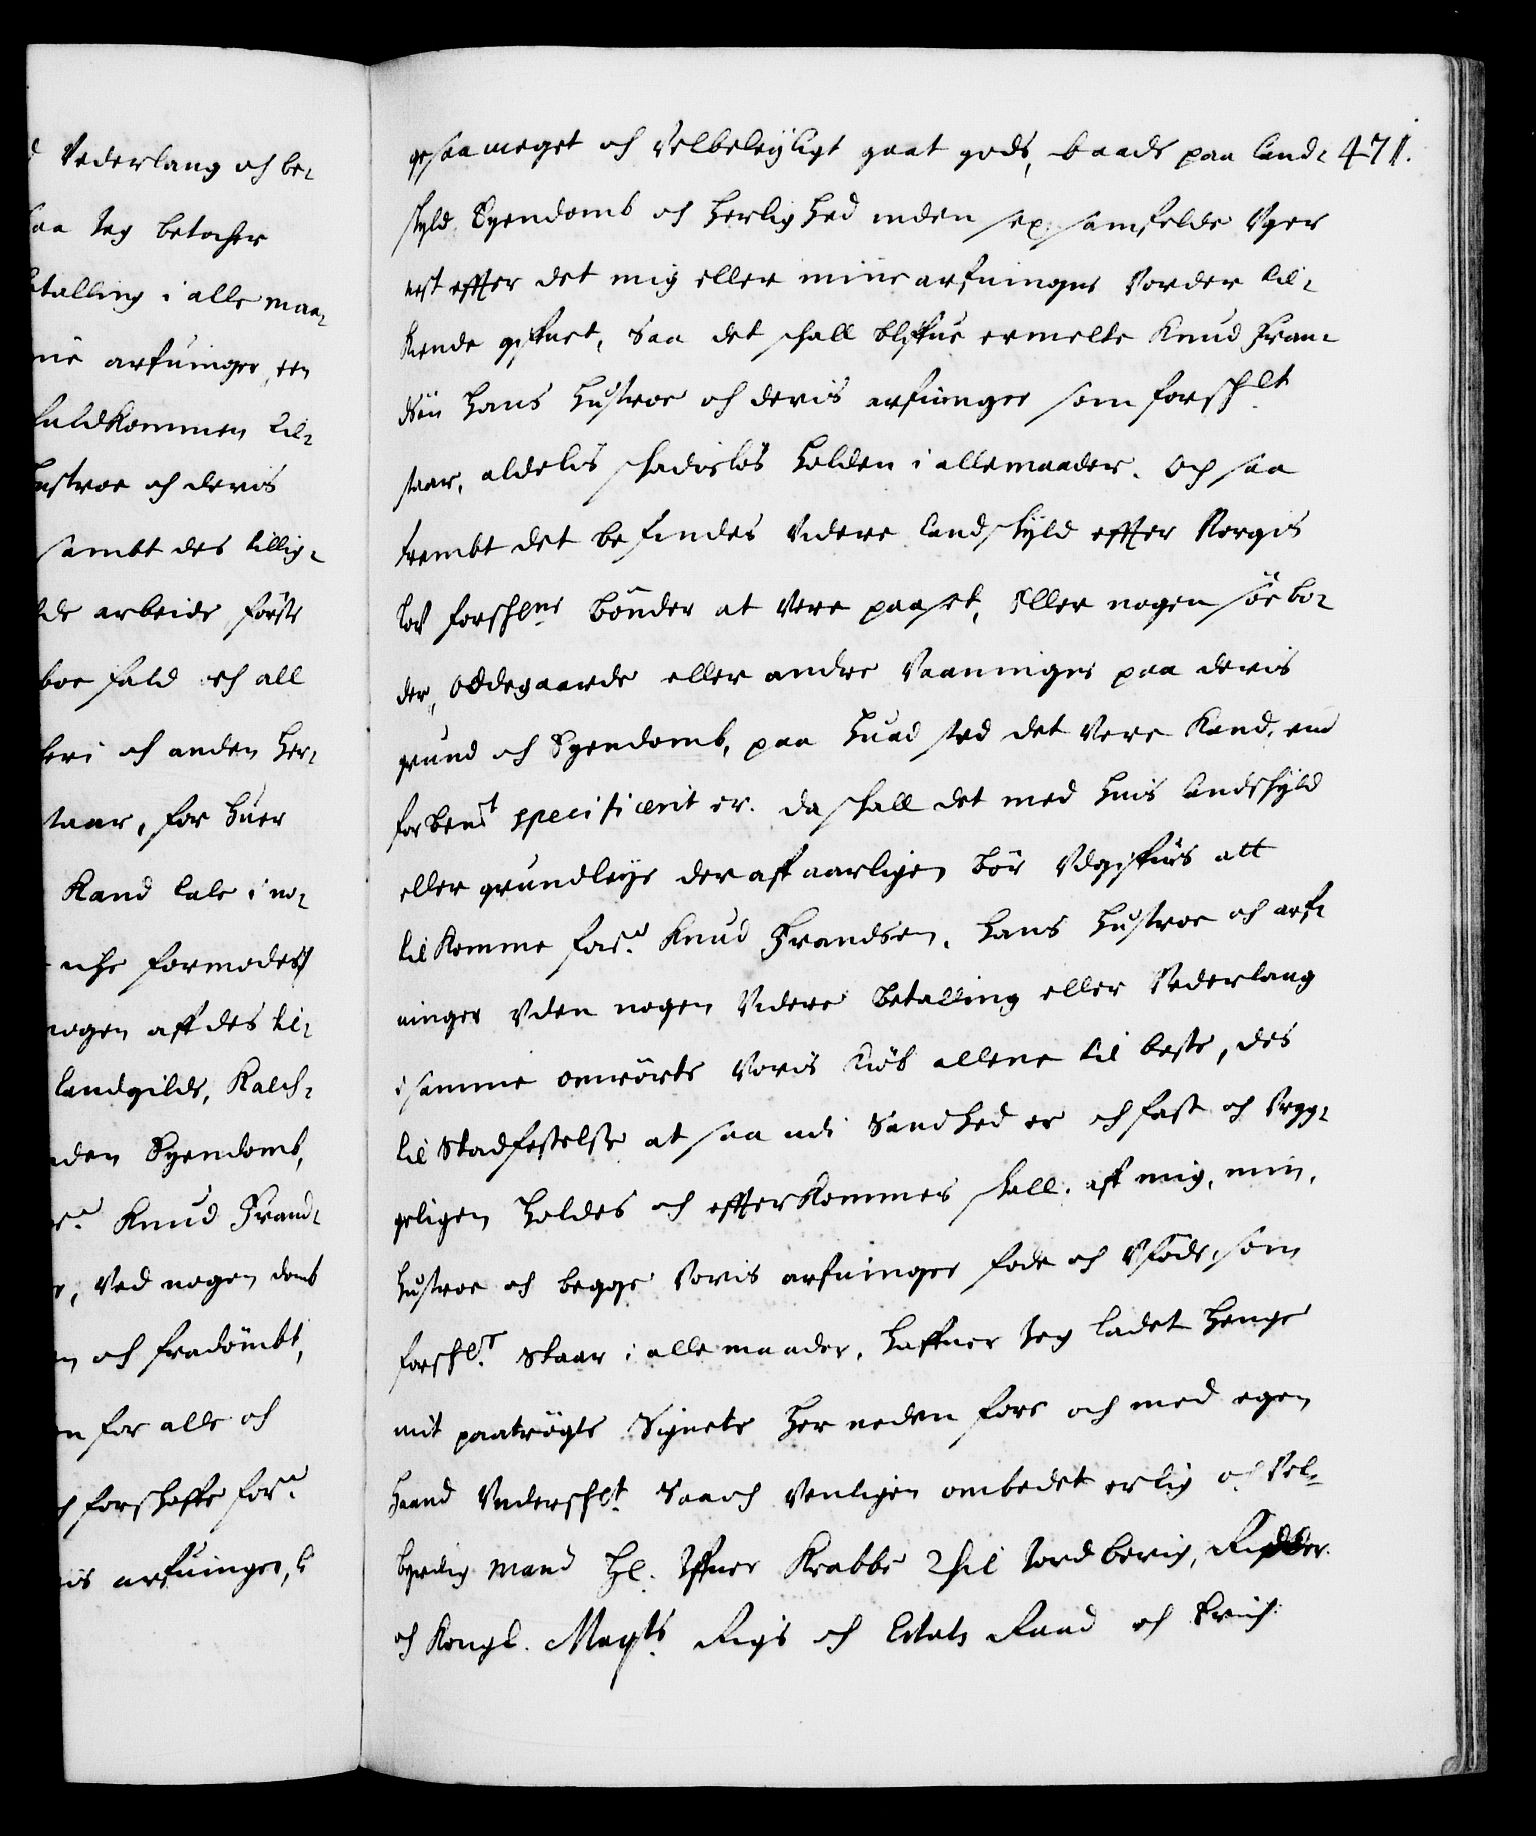 Vederlang och be-
saa Jeg betacher
etalling i alle maa-
arfuinger, en
fuldkommen til-
Hustroe och deris
sambt des tillig-
arbeide, første
boe fald och all
och anden Her-
staar, for huer
Kand tale i no-
iche formodes
nogen aff des til-
landgilde, Kalch-
Eyendomb,
Knud Frand-
Ved nogen domb
och fradømbt,
for alle och
forskaffe forne
arfuinger,
471.
gesaa meget och Velbeleyligt gaat gods, baade paa land-
skyld Eyendomb och Herlighed inden sex samfelde Uger
nest effter det mig eller mine arfuinger Vorder til-
Kiende giffuet, Saa det schall bliffue ermelte Knud Fran-
dsen Hans Hustroe och deris arfuinger som forschlt
staar, aldelis schadisløs holden i alle maader. Och saa
frembt det befindes Videre landskyld effter Norgis
Lov forschlne bønder at Vere paasat, Eller nogen søebo-
der, Ødegaarde eller andre Vaaninger paa deris
grund och Eyendomb, paa huad sted det Vere Kand, end
forbent specificerit er. da schall det med huis landskyld
eller grundleye der aff aarligen bør Udgiffuis att
tilkomme forne Knud Frandsen, Hans Hustroe och arf-
uinger Uden nogen Videre betalling eller Vederlang
i samme omrørte Voris Kiøb allene til beste, des
til Stadfestelse at saa udi Sandhed er och fast och Vryg-
geligen holdes och effterkommes schall, aff mig, min
hustroe och begge Voris arfuinger føde och Ufødde, som
forschlt staar i alle maader, haffuer Jeg ladet henge
mit paatrøgte Signete her neden fore och med egen
haand Underschlt Saa och Venligen ombedet erlig och Vel-
byrdig mand Hl. Iffuer Krabbe Thil Jordberig, Ridder
och Kongl. Mayts Rigs och Estats Raad och Krigs